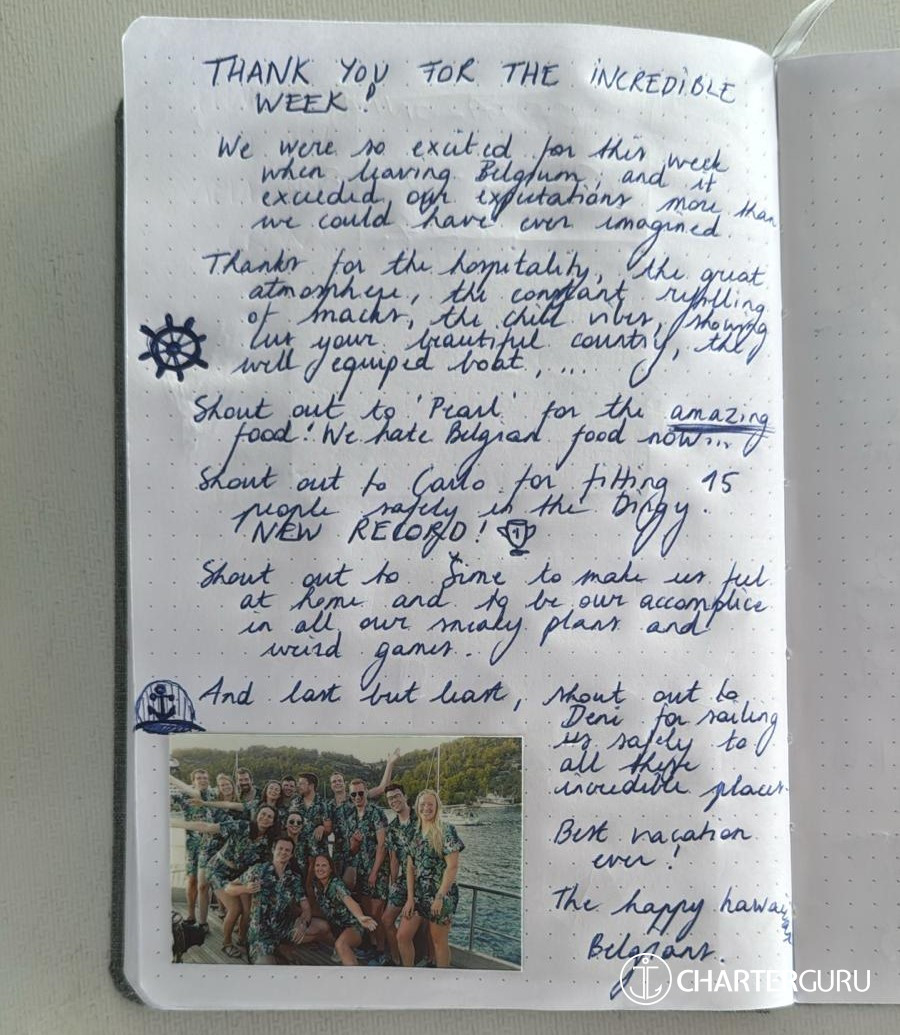 THANK YOU FOR THE INCREDIBLE
WEEK!
We were so excited for this week
when leaving Belgium, and it
exceeded our expectations more than
we could have ever imagined
Thanks for the hospitality, the great
atmosphere, the constant refilling
of snacks, the chill vibes, showing
us your beautiful country, the
well equiped boat, ...
Shout out to 'Pearl' for the amazing
food! We hate Belgian food now...
Shout out to Carlo for fitting 15
people safely in the Dingy.
NEW RECORD! 1
Shout out to Šime to make us feel
at home and to be our accomplice
in all our sneaky plans and
weird games.
And last but least, shout out to
Deni for sailing
us safely to
all these
incredible places
Best vacation
ever!
The happy hawaiian
Belgians.
CHARTERGURU